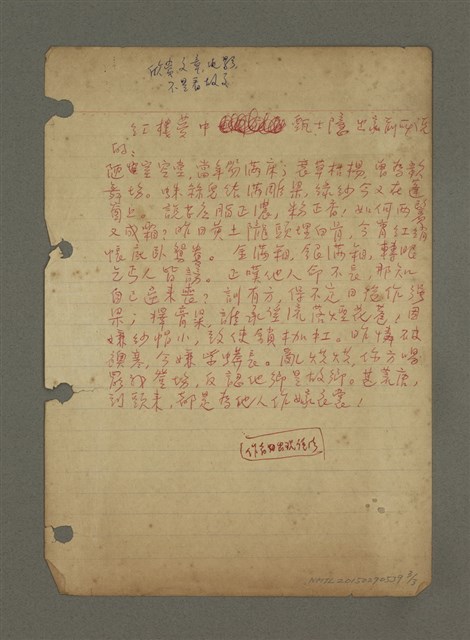 欣賞文章也點
不是看故事
紅樓夢中 甄士隱出家前所說
的。
陋室空堂,當年笏滿床;衰草枯楊,曾為歌
舞場。蛛絲兒結滿雕梁,綠紗今又在蓬
窗上。說甚么脂正濃,粉正香!如何兩鬢
又成霜?昨日黃土隴頭埋白骨,今宵紅綃
帳底臥鴛鴦。金滿箱,銀滿箱,轉眼
乞丐人皆謗。正嘆他人命不長,那知
自己歸來喪?訓有方,保不定日後作強
梁;擇膏粱,誰承望流落煙花巷!因
嫌紗帽小,致使鎖枷扛。昨憐破
襖寒,今嫌紫蟒長。亂烘烘,你方唱
罷我登場,反認他鄉是故鄉。甚荒唐,
到頭來,都是為他人作嫁衣裳!
NMTL20150290539 3/5